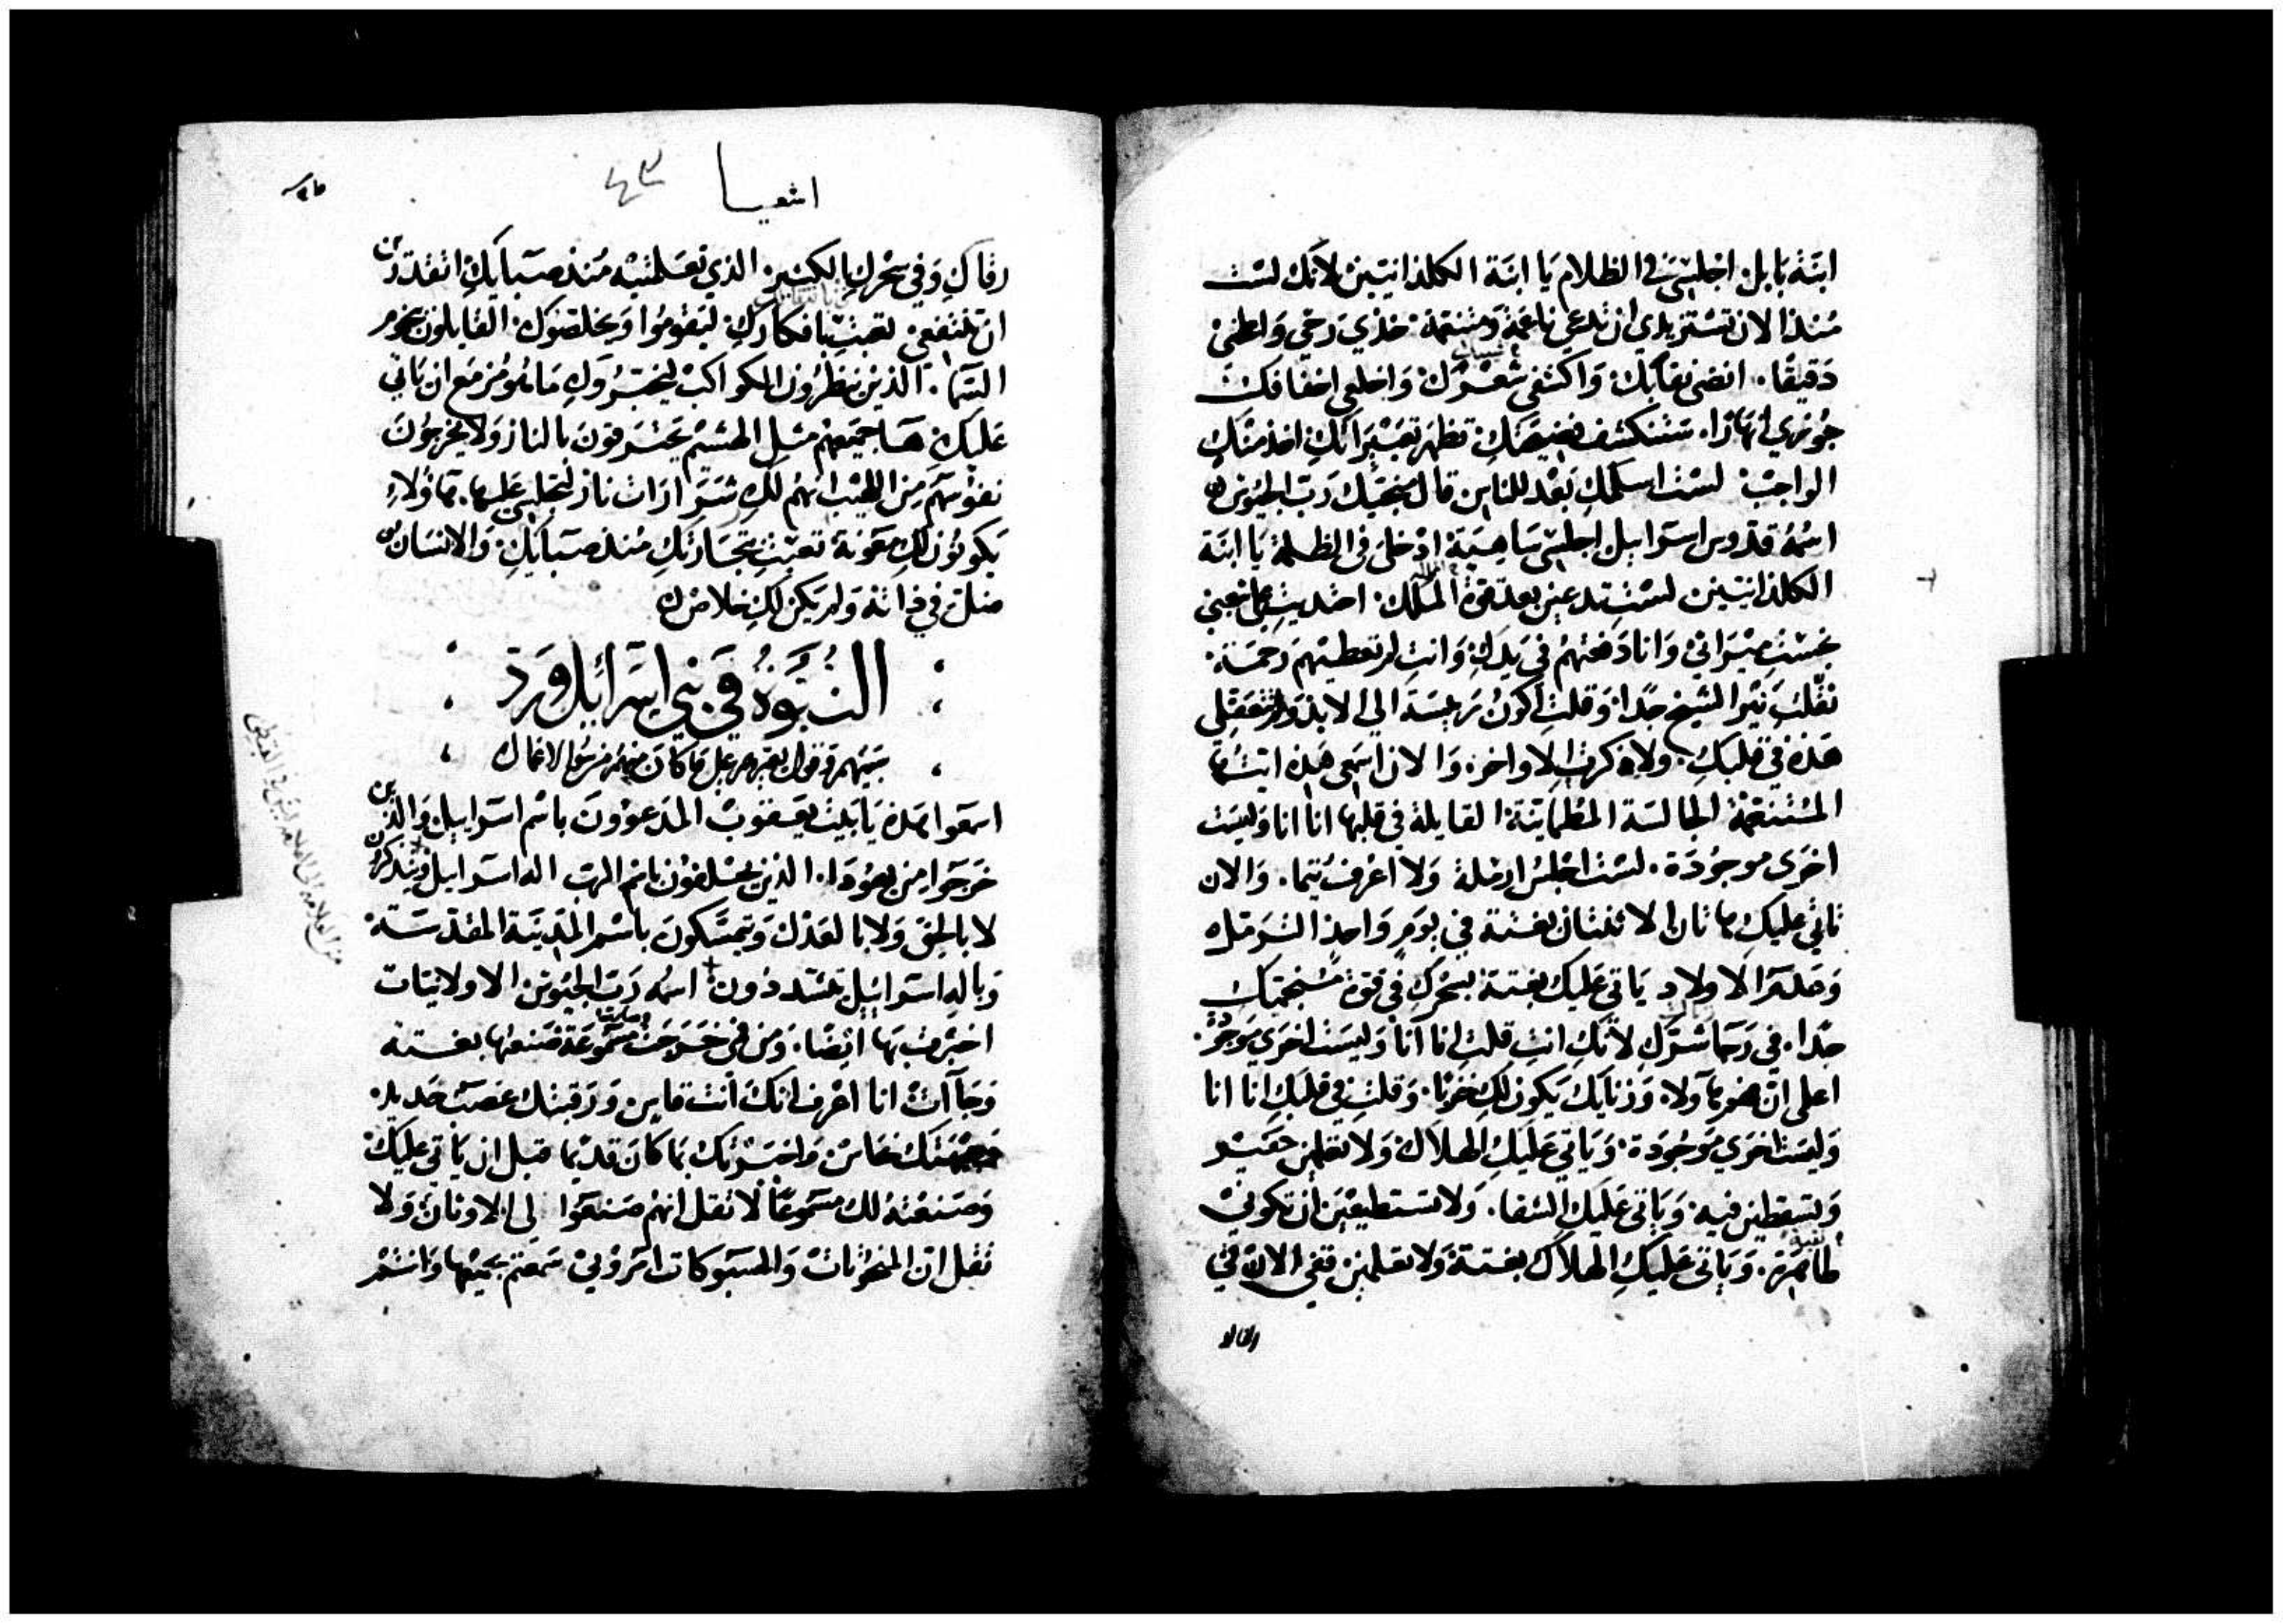 ابنة بابل اجلسي في الظلام يا ابنة الكلدانيين لانك لست
منذ الان تستزيدي ان تدعي ناعمة ومتنعمة خذي رحي واطحني
دقيقا. انضي نقابك واكشفي شعرك واخلعي اخفافك
جوزي انهارا. ستنكشف فضيحتك تظهر تعييراتك اخذ منك
الواجب لست اسلمك بعد للناس قال منجيك رب الجيوش
اسمه قدوس اسرايل اجلسي ادخلي في الظلمة يا ابنة
الكلدانيين لست تدعين بعد قوة الملك
نجست ميراثي وانا دفعتهم في يدك وانت لم تعطيهم رحمة
ثقلت نير الشيخ جدا وقلت اكون رييسة الي الابد ولم تعقلي
هذه في قلبك ولا ذكرت الاواخر والان اسمعي هذه ايتها
المتنعمة الجالسة المطماينة القايلة في قلبها انا انا وليست
اخرى موجودة. لست اجلس ارملة ولا اعرف يتما. والان
تاتي عليك هاتان الاثنتان بغتة في يوم واحد الترمل
وعدم الاولاد ياتي عليك بغتة بسحرك في قوة منجميك
جدا. في رجا شرك لانك انت قلت انا انا وليست اخرى موجودة
اعلمي ان فهم هاولاء وزناك يكون لك خزيا. وقلت في قلبك انا انا
وليست اخري موجودة وياتي عليك الهلاك ولا تعلمين حفير
وتسقطين فيه وياتي عليك الشقا. ولا تستطيعين ان تكوني
طاهرة. وياتي عليك الهلاك بغتة ولا تعلمين قفي الان في
رقاك
اشعيا
٤٣
رقاك وفي سحرك الكثير الذي تعلمتيه منذ صباك ان تقدرين
ان تنتفعي تعبت بافكارك ليقوموا ويخلصوك القايلون بنجوم
السما. الذين ينظرون الكواكب ليخبروك ما هو مزمع ان ياتي
عليك ها جميعهم مثل الهشيم يحترقون بالنار ولا يخرجون
نفوسهم من اللهيب انهم لك شرارات نار لتجلسي عليها. هاولاء
يكونون لك معونة تعبت بتجارتك منذ صباك والانسان
ضل في ذاته ولم يكن لك خلاص
النبوة في بني اسرائل ورد
سيتهم وقول يقبرهم علي ما كان منهم من سو الاعمال
اسمعوا هذه يا بيت يعقوب المدعوون باسم اسرايل والذين
خرجوا من يهودا. الذين يحلفون باسم الرب اله اسرايل ويتذكرون
لا بالحق ولا بالعدل ويتمسكون باسم المدينة المقدسة
وباله اسرايل تشتددون اسمه رب الجيوش الاولايات
اخبرت بها ايضا. ومن في خرجت وصارت مسموعة صنعتها بغتة
وجاات انا اعرف انك انت قاس ورقبتك عصب حديد
وجبهتك نحاس واخبرتك بما كان قديما قبل ان ياتي عليك
وصنعته لك مسموعا لا تقل انهم صنعوا لي الاوثان ولا
تقل ان المنحوتات والمسبوكات امروني سمعتم جميعها وانتم